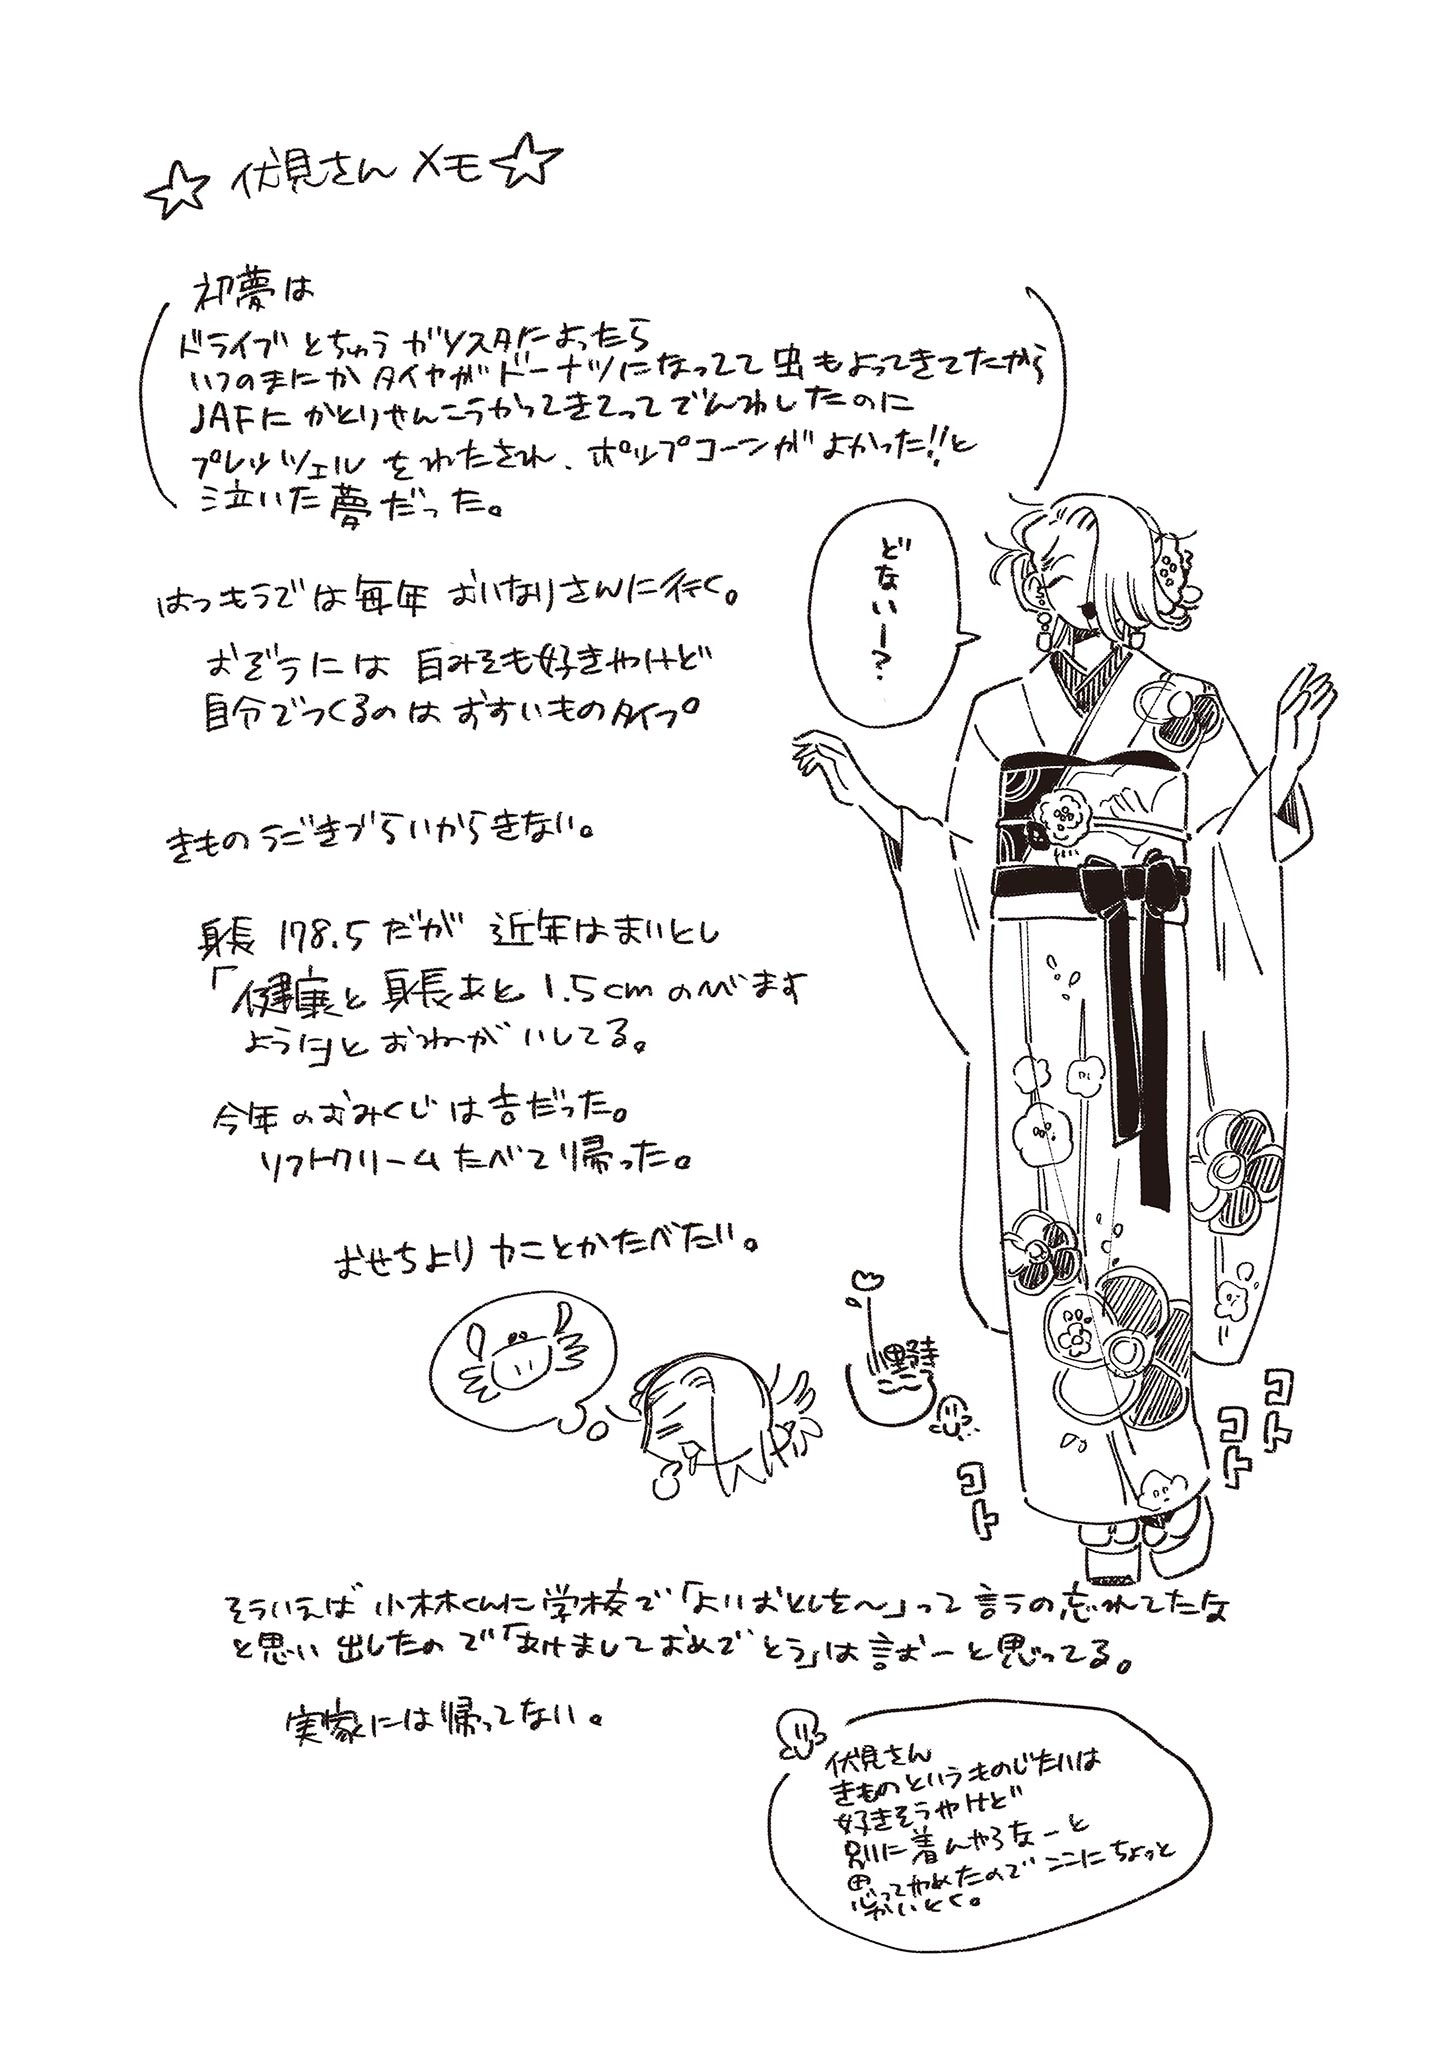 ☆伏見さんメモ☆
初夢は
ドライブとちゅうガソスタによったら
いつのまにかタイヤがドーナツになってて虫もよってきてたから
JAFにかとりせんこうかってきてってでんわしたのに
プレッツェルをわたされ、ポップコーンがよかった!!と
泣いた夢だった。
どないー?
はつもうでは毎年おいなりさんに行く。
おぞうには白みそも好きやけど
自分でつくるのはおすいものタイプ
きものうごきづらいからきない。
身長178.5だが近年はまいとし
「健康と身長あと1.5cmのびます
ように」とおねがいしてる。
今年のおみくじは吉だった。
ソフトクリームたべて帰った。
おせちよりカニとかたべたい。
コト
コト
コト
そういえば小林くんに学校で「よいおとしを〜」って言うの忘れてたな
と思い出したので「あけましておめでとう」は言おーと思ってる。
実家には帰ってない。
伏見さん
きものというものじたいは
好きそうやけど
別に着んやろなーと
思ってやめたのでここにちょっと
かいとく。